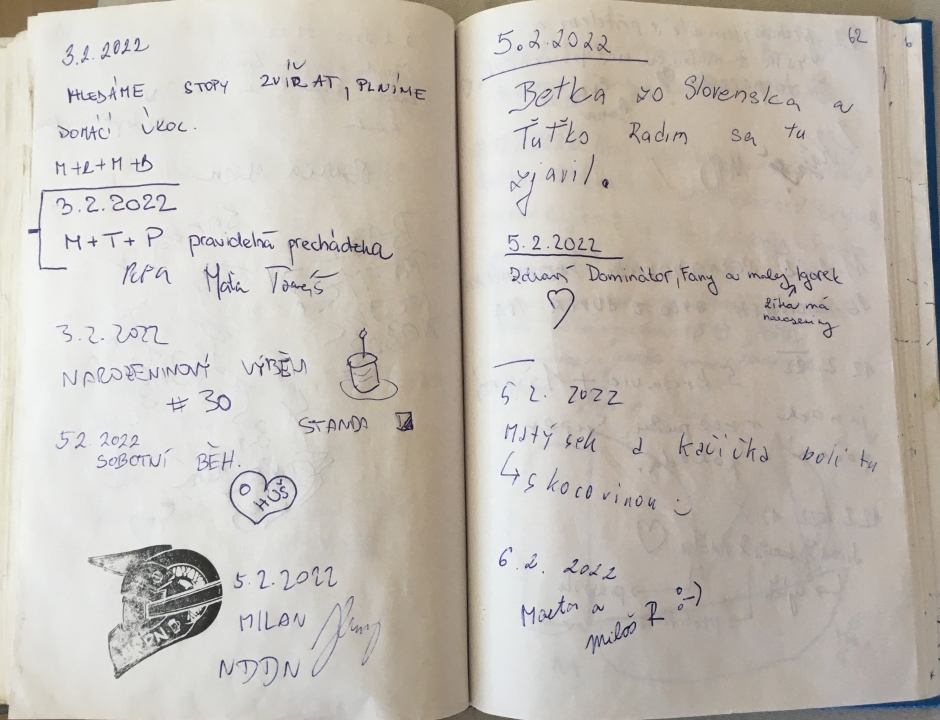 3.2.2022
HLEDÁME STOPY ZVÍŘAT, PLNÍME
DOMÁCÍ ÚKOL.
M+R+M+B
3.2.2022
M+T+P pravidelná prechádzka
PEPA Maťa Tomáš
3.2.2022
NAROZENINOVÝ VÝBĚH
# 30
STANDA
5 2. 2022
SOBOTNÍ BĚH.
HUŠ
5.2.2022
MILAN
NDDN
62
5.2.2022
Betka zo Slovenska a
Ťuťko Radim sa tu
zjavil.
5.2.2022
Zdraví Dominátor, Fany a malej Igorek
zíha má
narozeniny
5 2. 2022
Matýsek a kačička boli tu
↳ s kocovinou
6.2. 2022
a
Miloš R :-)